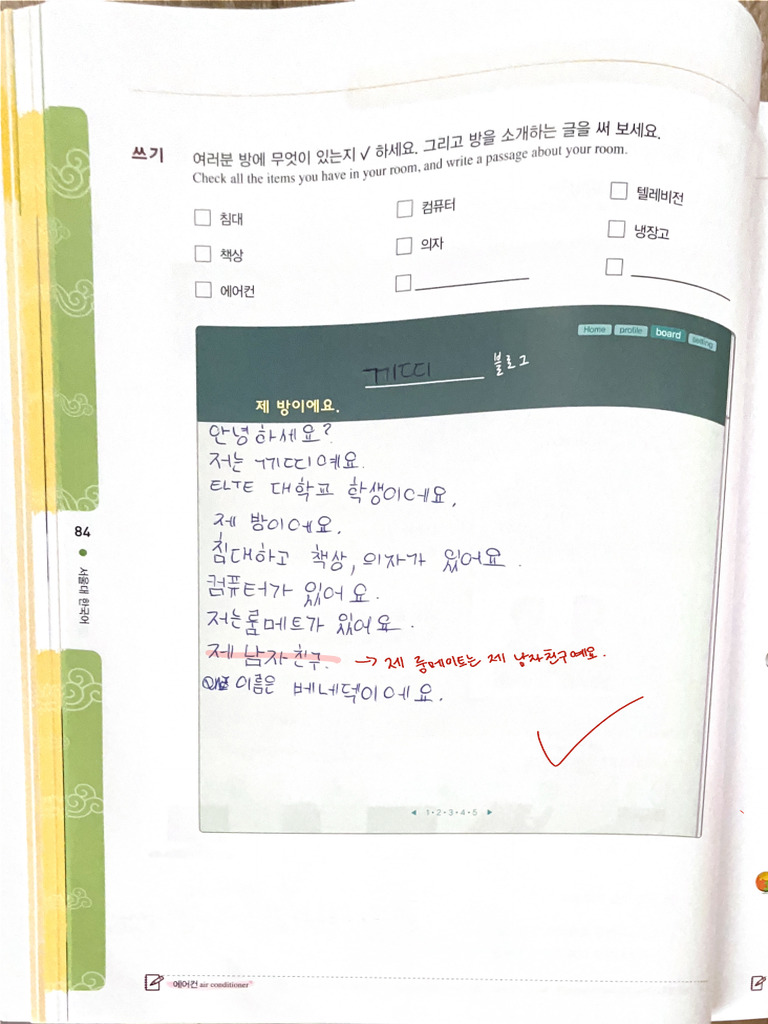 쓰기
여러분 방에 무엇이 있는지 ✓ 하세요. 그리고 방을 소개하는 글을 써 보세요.
Check all the items you have in your room, and write a passage about your room.
침대
컴퓨터
텔레비전
책상
의자
냉장고
에어컨
Home profile board setting
끼띠 블로그
제 방이에요.
안녕하세요?
저는 끼띠예요.
ELTE 대학교 학생이에요.
제 방이에요.
침대하고 책상, 의자가 있어요.
컴퓨터가 있어요.
저는 룸메트가 있어요.
제 남자친구. → 제 룸메이트는 제 남자친구예요.
이름은 베네덱이에요.
1·2·3·4·5
84
서울대 한국어
에어컨 air conditioner